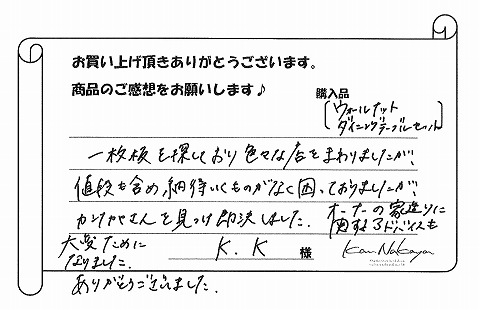 お買い上げ頂きありがとうございます。
商品のご感想をお願いします♪
購入品
(ウォールナット
ダイニングテーブルセット)
一枚板を探しており色々な店をまわりましたが、
値段も含め、納得いくものがなく困っておりましたが、
さんを見つけ即決しました。
オーナーの家造りに
関するアドバイスも
大変ために
なりました。
ありがとうございました。
K.K 様